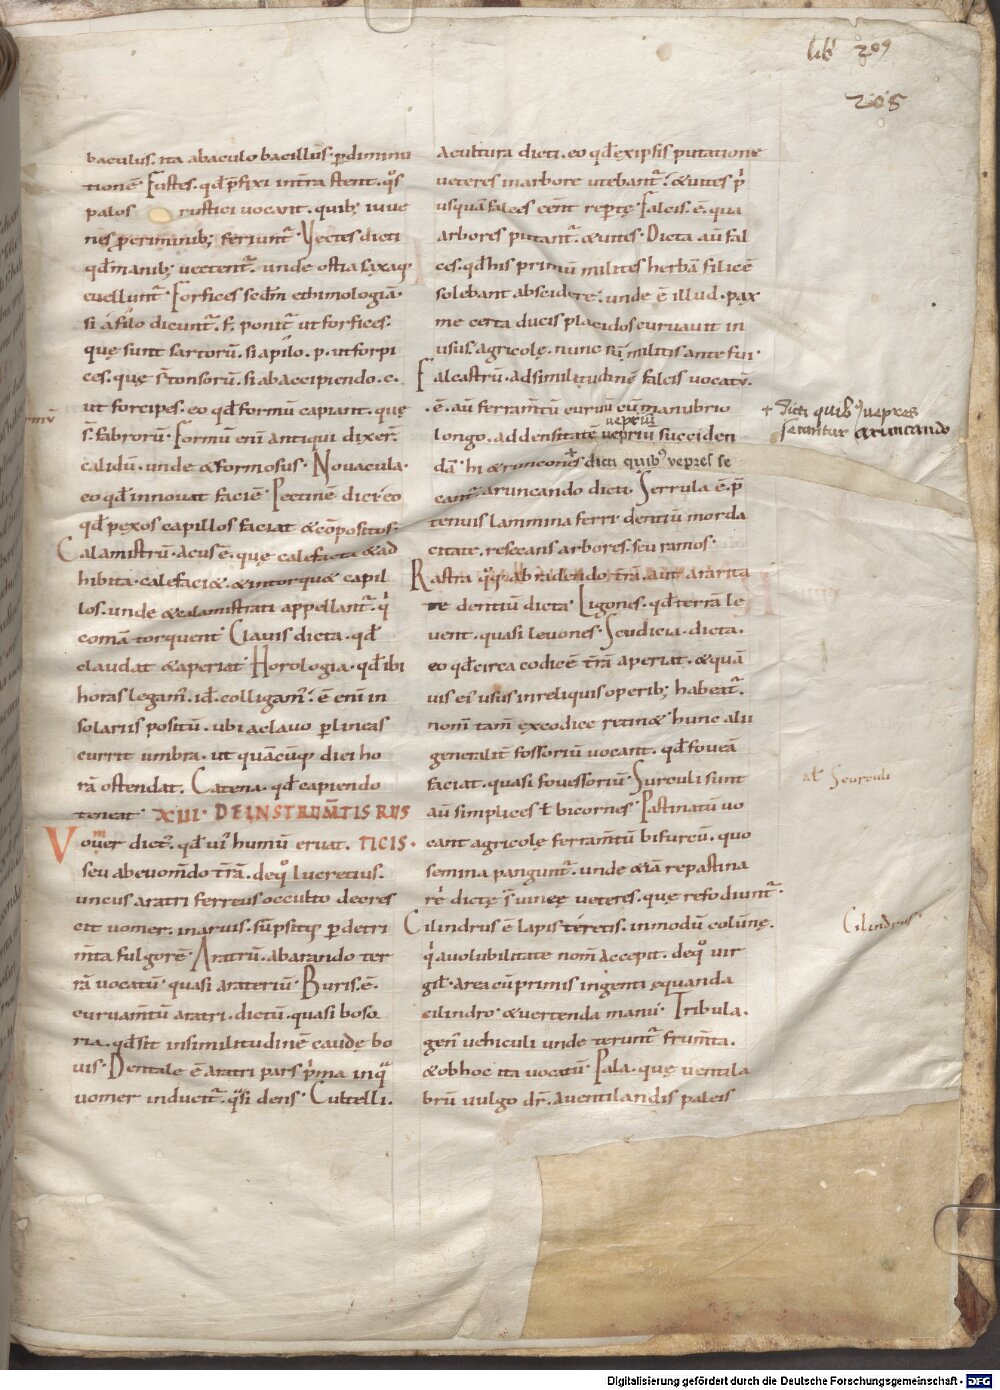 lib 209
205
baculus. ita abaculo bacillus. p̱diminu
tionē Fustes. qđ p̄fixi in tr̄ra stent. qͦs
palos rustici vocant. quib; iuue
nes p̱eriminib; feriunt᷑. Vectes dicti
qđ manib; vectent᷑. unde ostia saxaq;
euellunt᷑. Forfices sedm̄ ethimologiā.
si a filo dicunt᷑. f. ponit᷑ ut forfices.
quę sunt sartorū. si a pilo. p. ut forpi
ces. quę s̄ tonsorū. si ab accipiendo. c.
ut forcipes. eo qđ formū capiant. quę
s̄. fabrorū. Formū enī antiqui dixer̄.
calidū. unde & formosus. Novacula.
eo qđ innovat faciē. Pectinē dici eo
qđ pęxos capillos faciat & cōpositos.
Calamistrū. acus ē. quę calefacta & ad
hibita. calefaci& & intorqu& capil
los. unde & calamistrati appellant᷑. qͥ
comā torquent. Clavis dicta. qđ
claudat & aperiat. Horologia. qđ ibi
horas legam᷒. id. colligam᷒. ē enī in
solariis positū. ubi a clavo p̱ lineas
currit umbra. ut quācūq; diei ho
rā ostendat. Catena. qđ capiendo
teneat. XIII. DE INSTRUM̄TIS RUS
Vomer dict᷒. qđ ui humū eruat. TICIS.
seu ab evom̄do tr̄rā. deqͦ lucretius.
uncus aratri ferreus occulto decres
cit vomer. in arvis. sūpsitq; p̱ detri
m̄ta fulgorē. Aratrū. ab arando ter
rā vocatū. quasi araterıū. Buris. ē.
curuam̄tū aratri. dictū. quasi boso
ria. qđ sit in similitudinē caudę bo
vis. Dentale ē aratri pars p̄ma inqͣ
vomer inducit᷑. qͣsi dens. Cultelli.
acultura dicti. eo qđ ex ipsis putatione
veteres in arbore utebant᷑. & vites pͥ
usquā falces eēnt rep̱tę. Falcis. ē. qua
arbores putant᷑. & vites. Dicta aū fal
ces. qđ his primū milites herbā filicē
solebant abscidere. unde ē illud. pax
me certa ducis placidos curvavit in
usus. agricolę. nunc sū militis ante fui.
Falcastrū. ad similitudinē falcis vocatū.
.ē. aū ferram̄tū curvū cū manubrio
vepriū
longo. ad densitatē vepriū succiden
dā. hi & runcones dicti quib᷒ vepres se
cant᷑ aruncando dicti. Serrula ē. p̄
tenuis lammina ferri dentiū morda
citate. resecans arbores. seu ramos.
Rastra qͦq; ab radendo tr̄rā. aut ararita
te dentiū dicta. Ligones. qđ terrā le
vent. quasi levones. Scudicia. dicta.
eo qđ circa codicē tr̄rā aperiat. & quā
vis ei᷒ usus in reliquis operib; habeat᷑.
nom̄ tam̄ ex codice retin&. hunc alii
generalit̄ fossoriū vocant. qđ foveā
faciat. quasi fovessoriū. Surculi sunt
aū simplices ł bicornes. Pastinatū vo
cant agricolę ferram̄tū bifurcū. quo
semina pangunt᷑. unde & iā repastina
rē dictę s̄ vineę veteres. quę refodiunt᷑.
Cilindrus ē lapis téretis. in modū colūnę.
qͥ a volubilitate nom̄ accepit. deqͦ vir
gil᷒. area cū primis ingenti ęquanda
cilindro. & vertenda manu. Tribula.
gen᷒ vehiculi unde terunt᷑ frum̄ta.
& ob hoc ita vocatū. Pala. quę ventila
brū vulgo dr̄. aventilandis paleis
+ dicti quib᷒ vepres
secantur aruncando
al᷒ Scurculi
Cilindrus
Digitalisierung gefördert durch die Deutsche Forschungsgemeinschaft - DFG